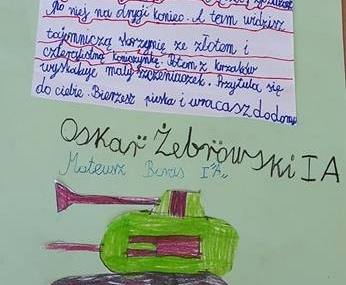 Po niej na drugi koniec. A tam widzisz
tajemniczą skrzynię ze złotem i
czterolistną koniczynkę. Potem z krzaków
wyskakuje mały szczeniaczek. Przytula się
do ciebie. Bierzesz pieska i wracasz do domu
Oskar Żebrowski I A
Mateusz I "A"